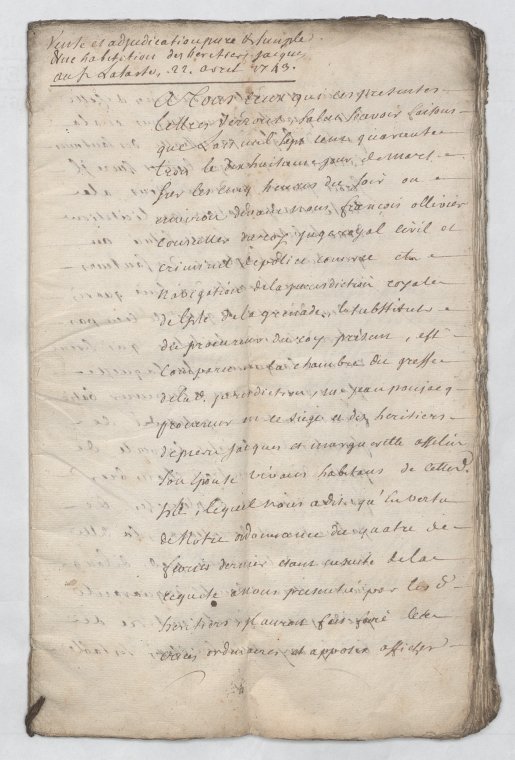 Vente et adjudication pure & simple
d'une habitation des heritiers jacques
au Sr. Lataste, 22. avril 1743.
A Tous ceux qui ces presentes
Lettres verront, Salut Scavoir faisons
que L'an mil Sept cens quarante
trois le dix huitieme jour de mars
sur les cinq heures du soir ou
environ devant nous françois ollivier
conseiller du roy juge royal civil et
criminel de police commerce et
navigation de la jurisdiction royale
de l'isle de la grenade, le substitut
du procureur du roy présent, est
comparu en la chambre du greffe
de lad. jurisdiction, me jean
procureur en ce siege et des heritiers
de pierre jacques et margueritte
son epouse vivans habitans de cetted.
isle, lequel nous a dit qu'en vertu
de notre ordonnance du quatre de
fevrier dernier etant ensuite de la
requete a nous presentée par les d.
heritiers il auroit fait faire les
criées ordinaires et apposer afficher